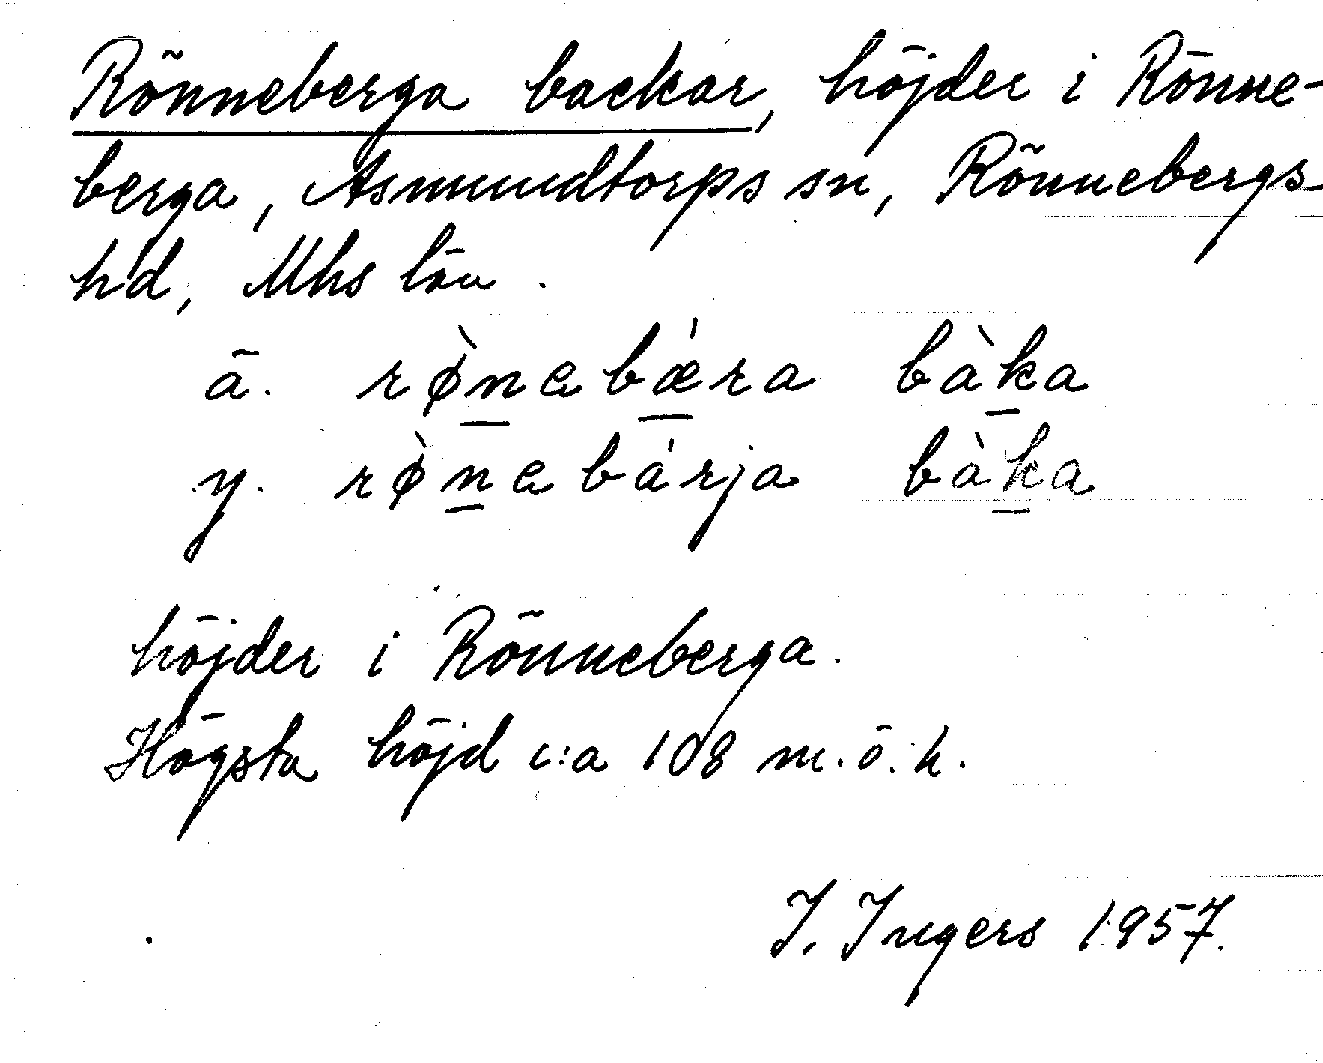 Rönneberga backar, höjder i Rönne-
berga, Asmundtorps sn, Rönnebergs
hd, Mhs län.
ä. rø̀n̲ebǽ̲ra bàk̲a
y. rø̀n̲ebárja bàk̲a
höjder i Rönneberga.
Högsta höjd c:a 108 m.ö.h.
I. Ingers 1957.